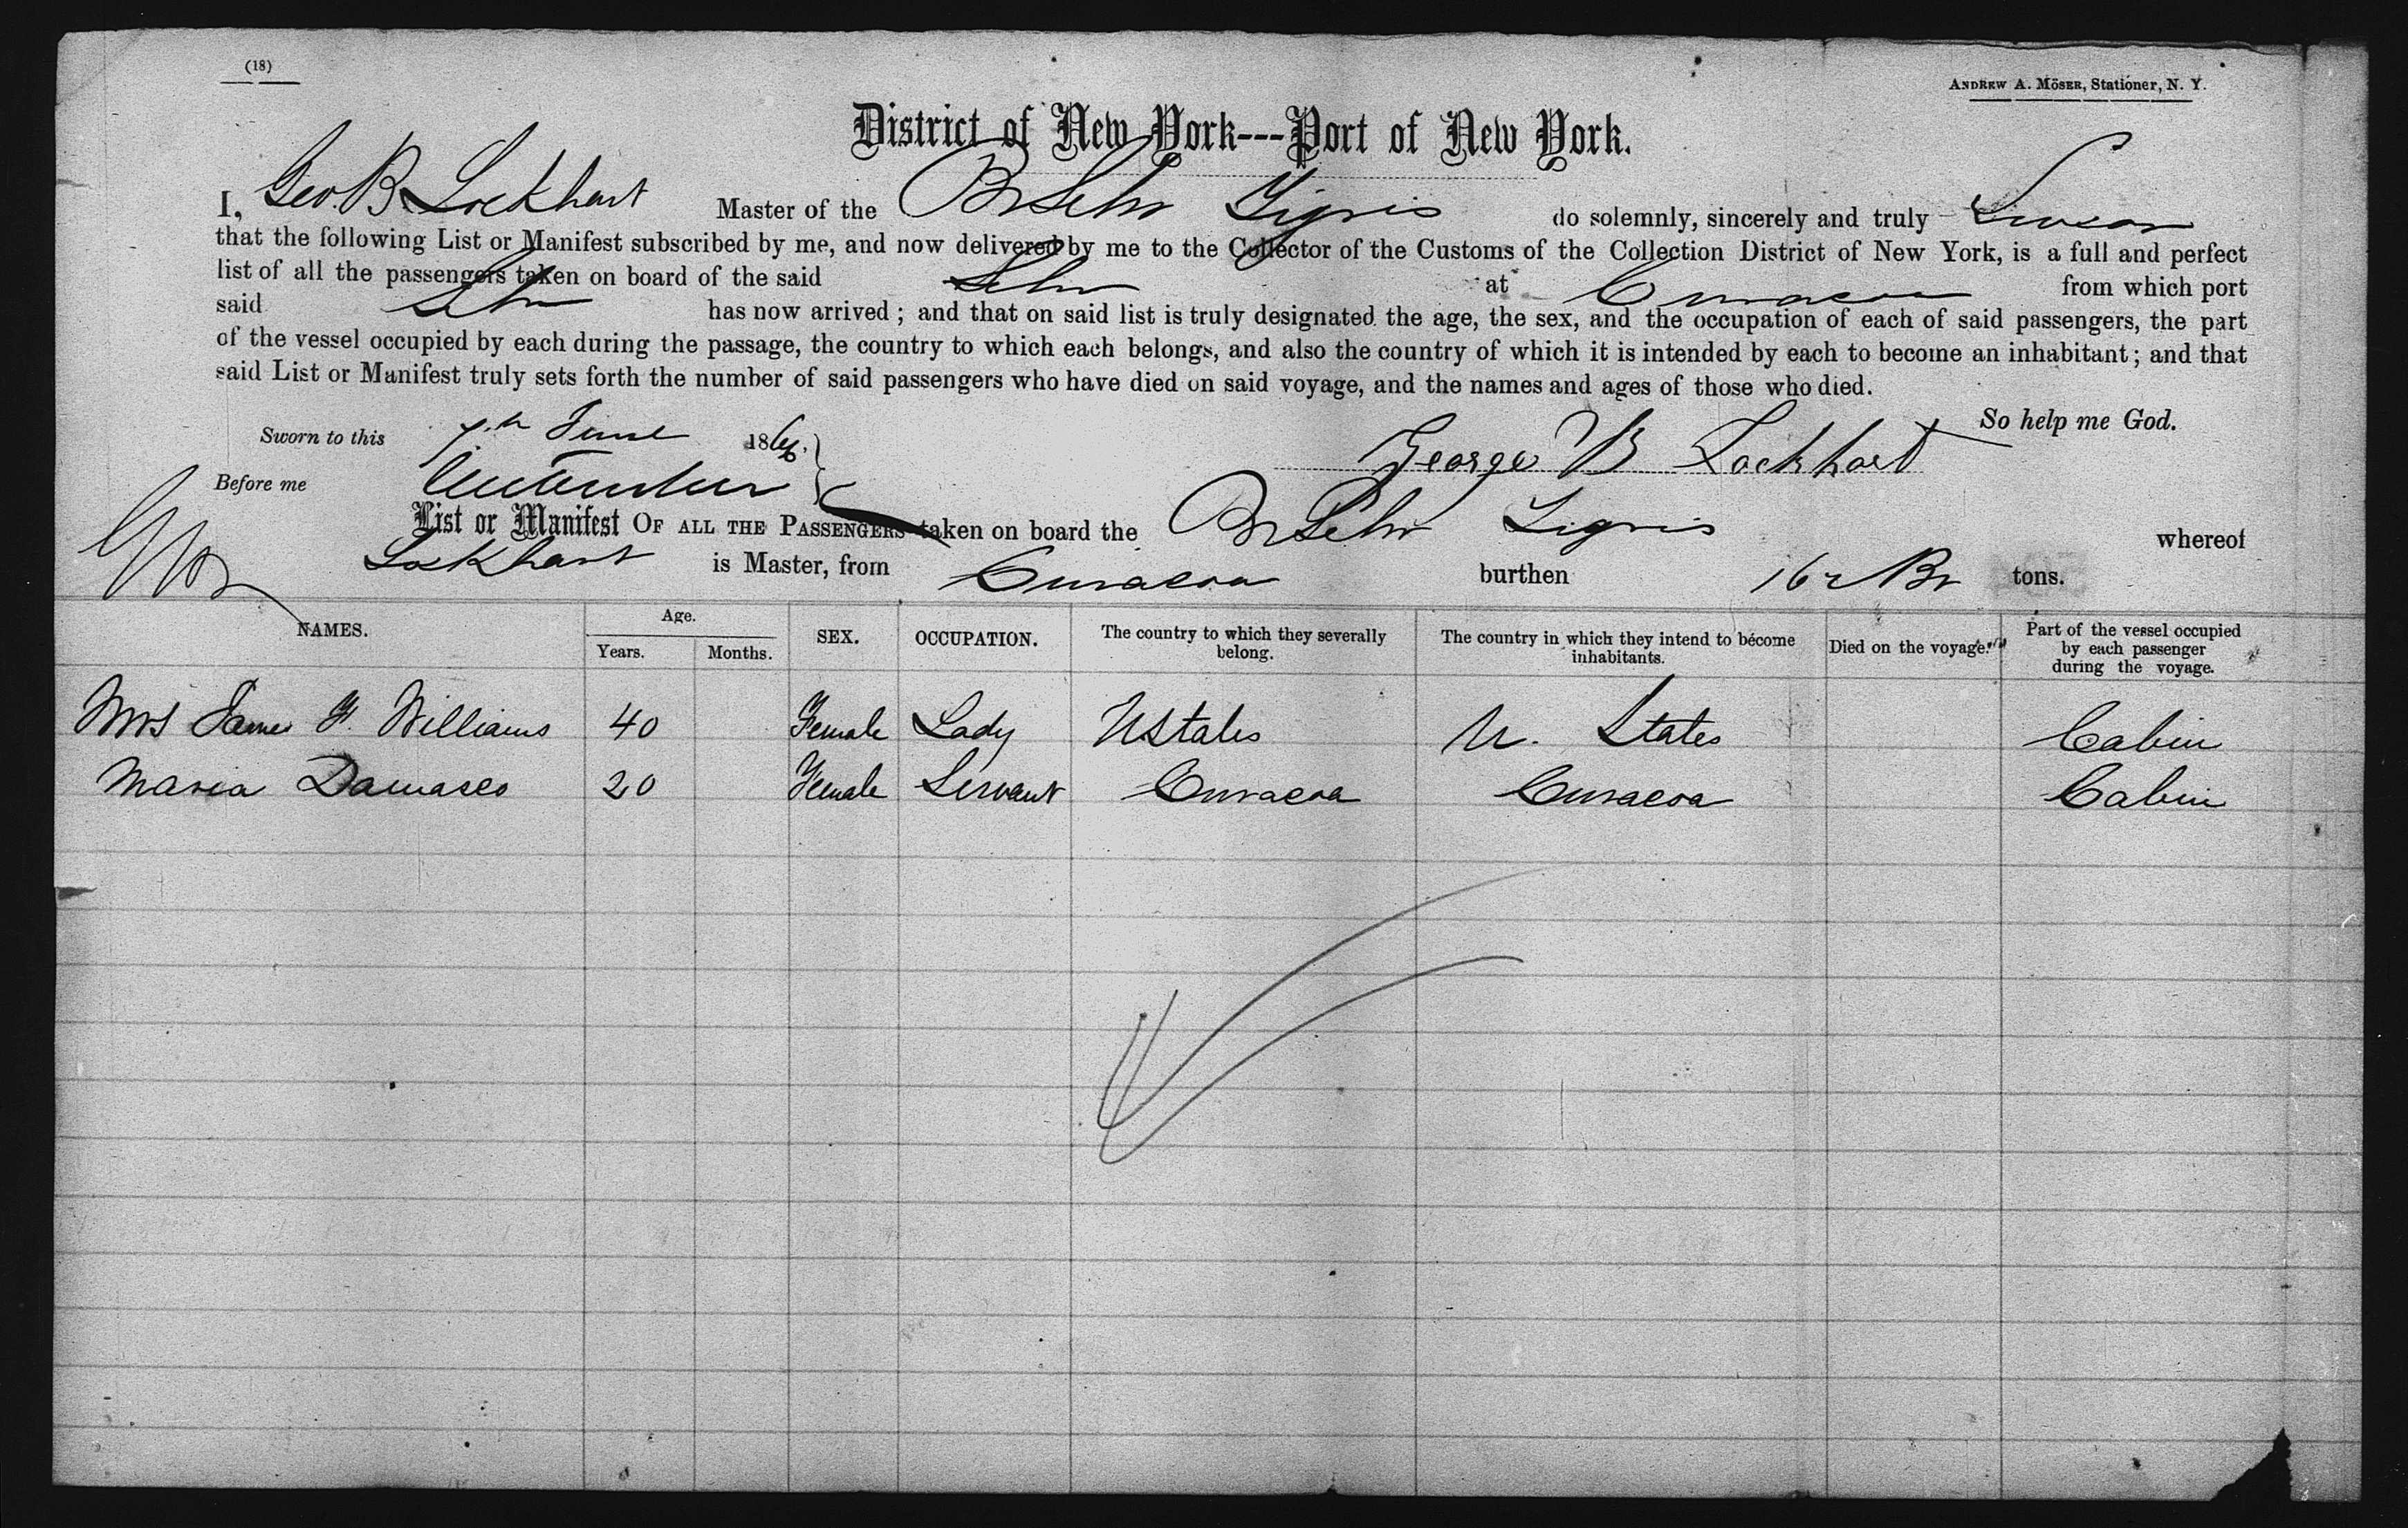 (18)
ANDREW A. MÖSER, Stationer, N. Y.
District of New York---Port of New York.
I, Geo. B Lockhart Master of the Br Schr Tigris do solemnly, sincerely and truly Swear
that the following List or Manifest subscribed by me, and now delivered by me to the Collector of the Customs of the Collection District of New York, is a full and perfect
list of all the passengers taken on board of the said Schr at Curacoa from which port
said Schr has now arrived; and that on said list is truly designated the age, the sex, and the occupation of each of said passengers, the part
of the vessel occupied by each during the passage, the country to which each belongs, and also the country of which it is intended by each to become an inhabitant; and that
said List or Manifest truly sets forth the number of said passengers who have died on said voyage, and the names and ages of those who died.
So help me God.
Sworn to this 7th June 186
George B Lockhart
Before me
List or Manifest OF ALL THE PASSENGERS taken on board the Br Schr Tigris whereof
Lockhart is Master, from Curacoa burthen tons.
NAMES. Age. Years. Months. SEX. OCCUPATION. The country to which they severally belong. The country in which they intend to become inhabitants. Died on the voyage. Part of the vessel occupied by each passenger during the voyage.
Mrs James F. Williams 40 Female Lady UStates U. States Cabin
Maria Damasco 20 Female Servant Curacoa Curacoa Cabin